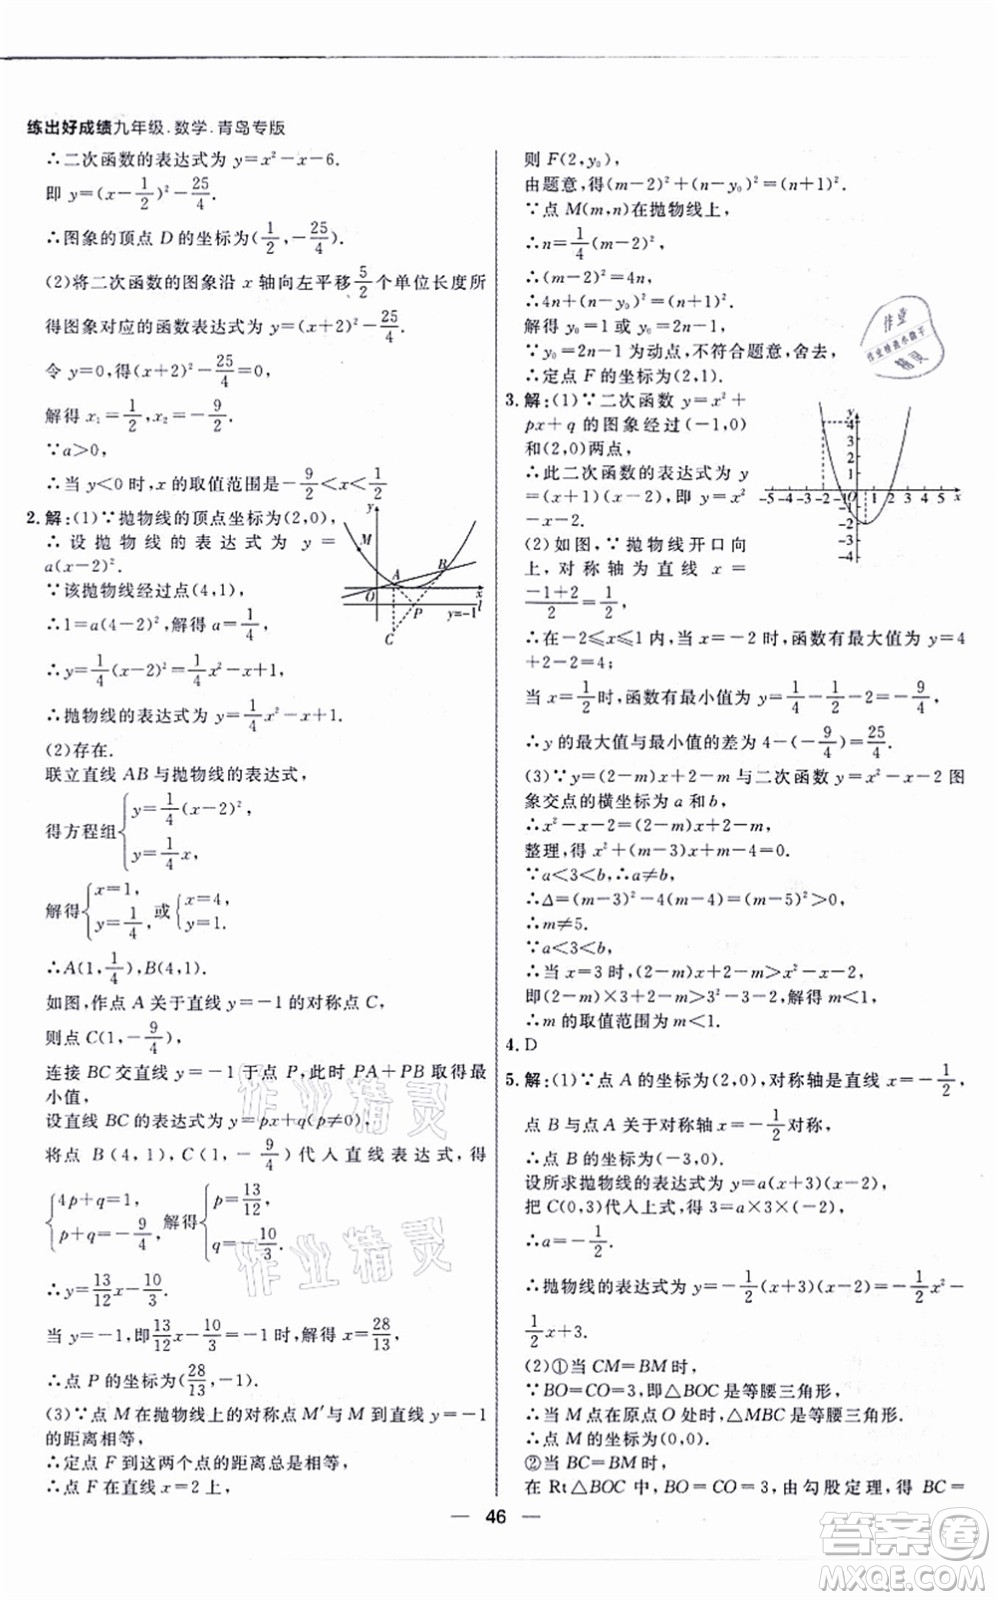 练出好成绩九年级.数学.青岛专版
∴二次函数的表达式为 y=x²-x-6.
即 y=(x-1/2)²-25/4.
∴图象的顶点 D 的坐标为(1/2,-25/4).
(2)将二次函数的图象沿 x 轴向左平移5/2个单位长度所
得图象对应的函数表达式为 y=(x+2)²-25/4.
令 y=0,得(x+2)²-25/4=0,
解得 x₁=1/2,x₂=-9/2.
∵a>0,
∴当 y<0 时,x 的取值范围是-9/2<x<1/2
2.解:(1)∵抛物线的顶点坐标为(2,0),
∴设抛物线的表达式为 y=
a(x-2)².
∵该抛物线经过点(4,1),
∴1=a(4-2)²,解得 a=1/4,
∴y=1/4(x-2)²=1/4x²-x+1,
∴抛物线的表达式为 y=1/4x²-x+1.
(2)存在.
联立直线 AB 与抛物线的表达式,
得方程组{y=1/4(x-2)²,
y=1/4x,
解得{x=1, y=1/4,或{x=4, y=1.
∴A(1,1/4),B(4,1).
如图,作点 A 关于直线 y=-1 的对称点 C,
则点 C(1,-9/4),
连接 BC 交直线 y=-1 于点 P,此时 PA+PB 取得最
小值,
设直线 BC 的表达式为 y=px+q(p≠0),
将点 B(4,1),C(1,-9/4)代入直线表达式,得
{4p+q=1, p+q=-9/4,解得{p=13/12, q=-10/3.
∴y=13/12x-10/3.
当 y=-1,即13/12x-10/3=-1时,解得 x=28/13,
∴点 P 的坐标为(28/13,-1).
(3)∵点 M 在抛物线上的对称点 M′与 M 到直线 y=-1
的距离相等,
∴定点 F 到这两个点的距离总是相等,
∴点 F 在抛物线的对称轴直线 x=2 上,
y
M
A
B
O
x
P
y=-1
l
C
则 F(2,y₀),
由题意,得(m-2)²+(n-y₀)²=(n+1)².
∵点 M(m,n)在抛物线上,
∴n=1/4(m-2)²,
∴(m-2)²=4n,
∴4n+(n-y₀)²=(n+1)².
解得 y₀=1 或 y₀=2n-1,
∵y₀=2n-1 为动点,不符合题意,舍去,
∴定点 F 的坐标为(2,1).
3.解:(1)∵二次函数 y=x²+
px+q 的图象经过(-1,0)
和(2,0)两点,
∴此二次函数的表达式为 y
=(x+1)(x-2),即 y=x²
-x-2.
(2)如图,∵抛物线开口向
上,对称轴为直线 x=
(-1+2)/2=1/2,
y
4
3
2
1
-5 -4 -3 -2 -1 O 1 2 3 4 5 x
-1
-2
-3
-4
∴在-2≤x≤1 内,当 x=-2 时,函数有最大值为 y=4
+2-2=4;
当 x=1/2时,函数有最小值为 y=1/4-1/2-2=-9/4,
∴y 的最大值与最小值的差为 4-(-9/4)=25/4.
(3)∵y=(2-m)x+2-m 与二次函数 y=x²-x-2 图
象交点的横坐标为 a 和 b,
∴x²-x-2=(2-m)x+2-m,
整理,得 x²+(m-3)x+m-4=0.
∵a<3<b,∴a≠b,
∴Δ=(m-3)²-4(m-4)=(m-5)²>0,
∴m≠5.
∵a<3<b,
∴当 x=3 时,(2-m)x+2-m>x²-x-2,
即(2-m)×3+2-m>3²-3-2,解得 m<1.
∴m 的取值范围为 m<1.
4.D
5.解:(1)∵点 A 的坐标为(2,0),对称轴是直线 x=-1/2,
点 B 与点 A 关于对称轴 x=-1/2对称,
∴点 B 的坐标为(-3,0).
设所求抛物线的表达式为 y=a(x+3)(x-2),
把 C(0,3)代入上式,得 3=a×3×(-2),
∴a=-1/2,
∴抛物线的表达式为 y=-1/2(x+3)(x-2)=-1/2x²-
1/2x+3.
(2)①当 CM=BM 时,
∵BO=CO=3,即△BOC 是等腰三角形,
∴当点 M 在原点 O 处时,△MBC 是等腰三角形.
∴点 M 的坐标为(0,0).
②当 BC=BM 时,
在 Rt△BOC 中,BO=CO=3,由勾股定理,得 BC=
— 46 —
作业
作业精灵
作业精灵
精灵
答案圈
MXQE.COM